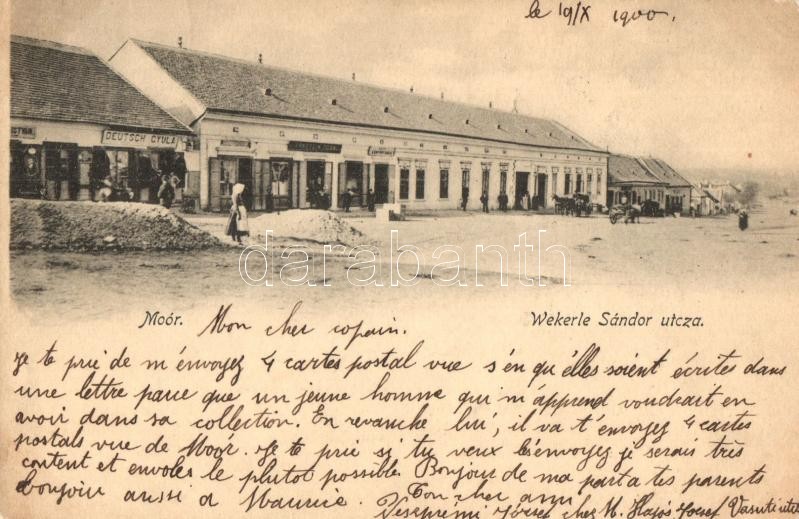 le 19/X 1900.
DEUTSCH GYULA
darabanth
Moór.
Wekerle Sándor utcza.
Mon cher copain.
Je te prie de m'énvoyez 4 cartes postal vue s'én qu'élles soient écrites dans
une lettre parce que un jeune homme qui m'apprend voudrait en
avoir dans sa collection. En revanche lui, il va t'énvoyez 4 cartes
postals vue de Moór. Je te prie si tu veux les énvoyez je serais très
content et envoies le plutot possible. Bonjour de ma part a tes parents
Bonjour aussi a Maurice. Ton cher ami
Veszprémi József cher M. Hajós József Vasúti utca